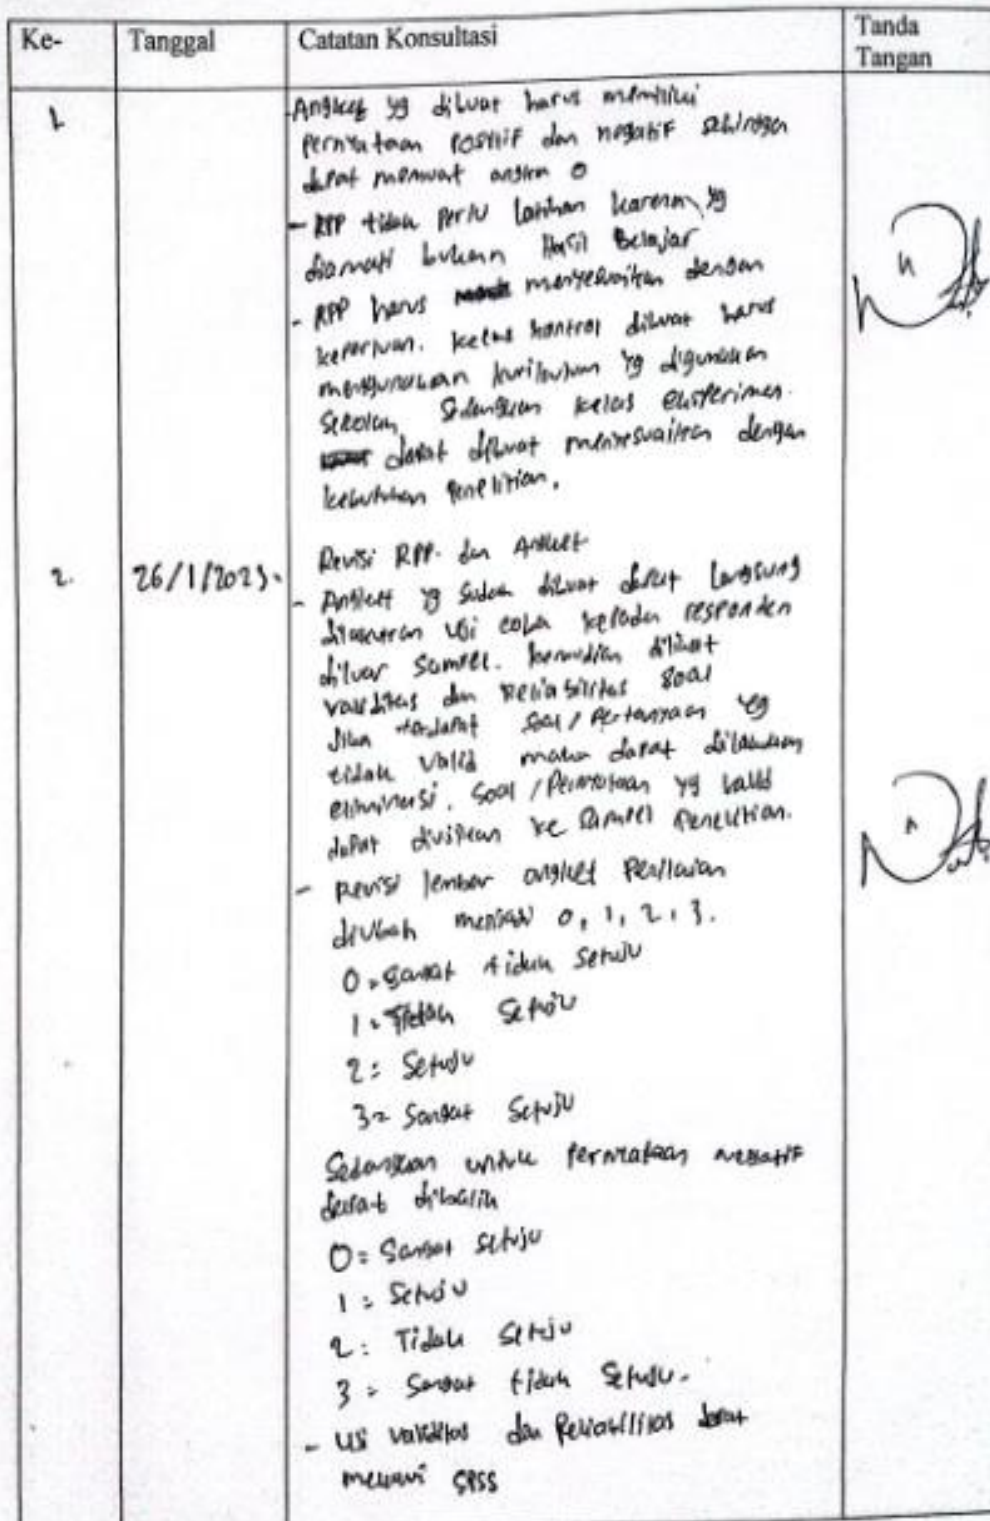 Ke-
Tanggal
Catatan Konsultasi
Tanda
Tangan
1
- Angket yg dibuat harus memiliki
pernyataan positif dan negatif sehingga
dapat memuat angka 0
- RPP tidak perlu latihan karena yg
diamati bukan Hasil Belajar
- RPP harus menyesuaikan dengan
keperluan. kelas kontrol dibuat harus
menggunakan kurikulum yg digunakan
sekolah, sedangkan kelas eksperimen.
dapat dibuat menyesuaikan dengan
kebutuhan penelitian.
2.
26/1/2023.
Revisi RPP. dan Angket
- Angket yg sudah dibuat dapat langsung
dilakukan uji coba kepada responden
diluar sampel. kemudian dilihat
validitas dan reliabilitas soal
Jika terdapat soal / pertanyaan yg
tidak valid maka dapat dilakukan
eliminasi. soal / pernyataan yg valid
dapat diujikan ke sampel penelitian.
- Revisi lembar angket penilaian
diubah menjadi 0, 1, 2, 3.
0 = Sangat tidak setuju
1 = Tidak setuju
2 = Setuju
3 = Sangat Setuju
Sedangkan untuk pernyataan negatif
dapat dibalik
0 = Sangat setuju
1 = Setuju
2 = Tidak setuju
3 = Sangat tidak setuju.
- Uji validitas dan Reliabilitas dapat
melalui SPSS